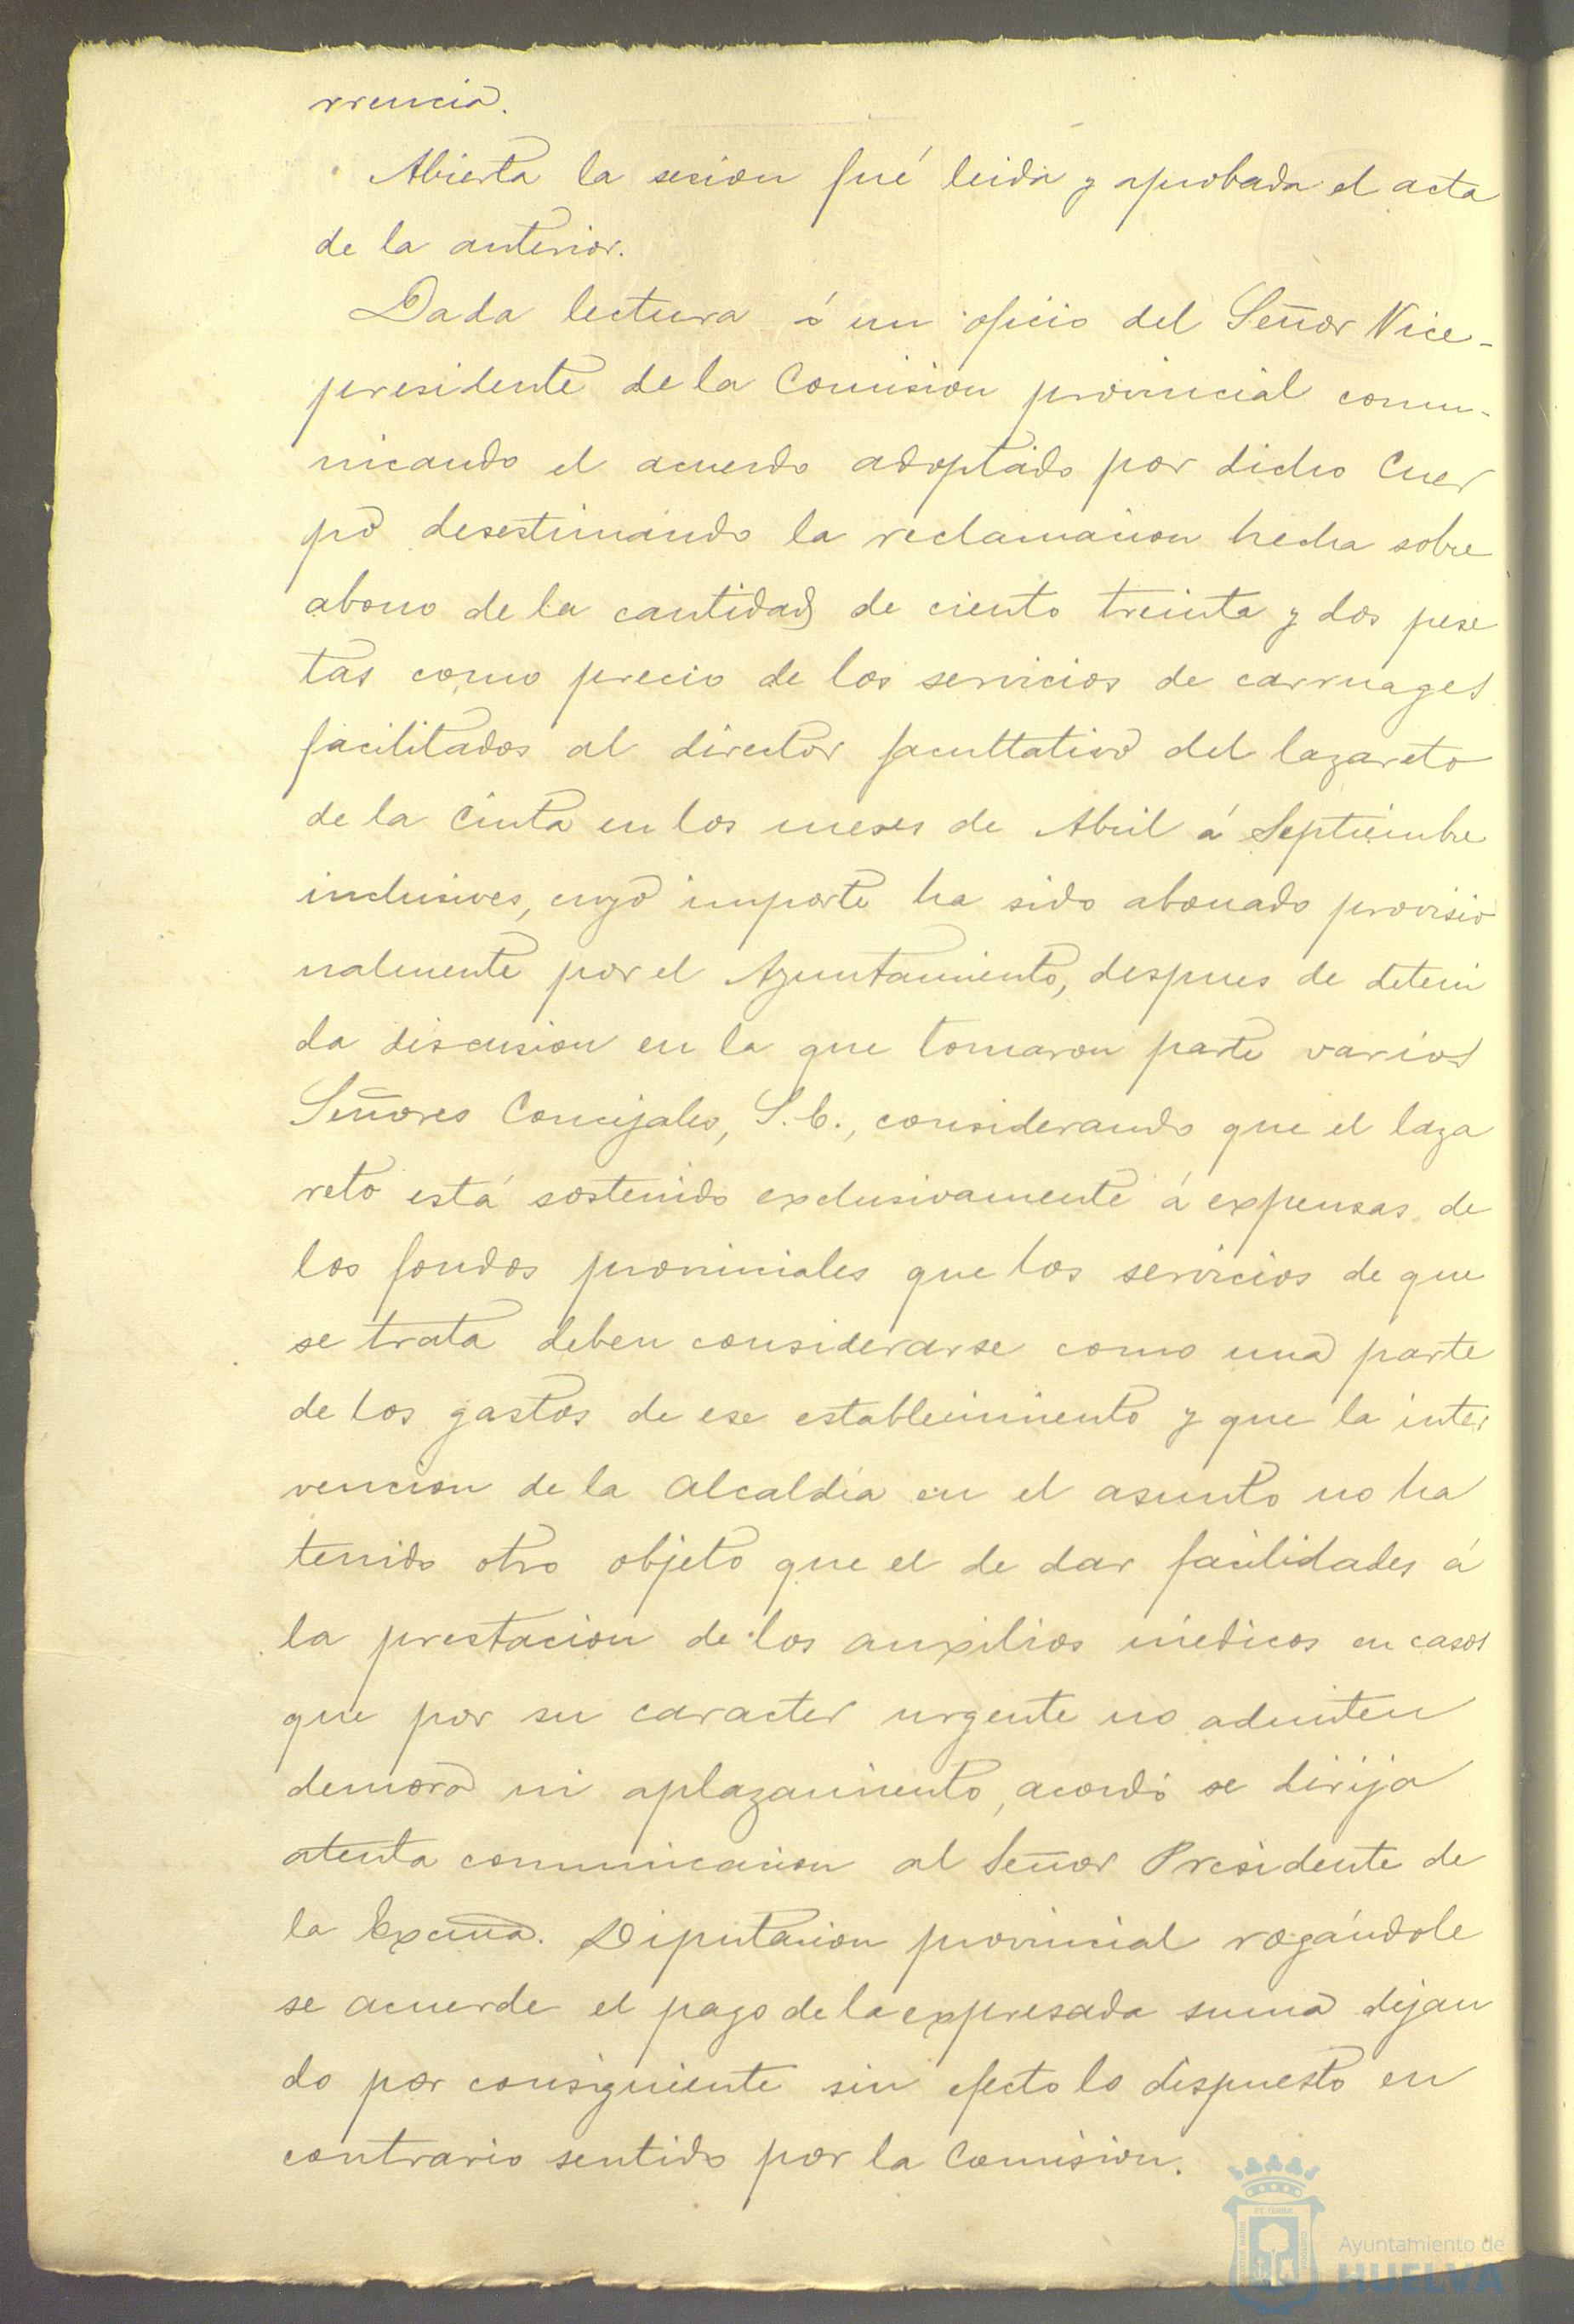 rrencia.
Abierta la sesion fué leida y aprobada el acta
de la anterior.
Dada lectura á un oficio del Señor Vice-
presidente de la Comision provincial comu-
nicando el acuerdo adoptado por dicho Cuer
po desestimando la reclamacion hecha sobre
abono de la cantidad de ciento treinta y dos pese
tas como precio de los servicios de carruages
facilitados al director facultativo del lazareto
de la Cinta en los meses de Abril á Septiembre
inclusives, cuyo importe ha sido abonado provisio
nalmente por el Ayuntamiento, despues de deteni
da discusion en la que tomaron parte varios
Señores Concejales, S.E., considerando que el laza
reto está sostenido exclusivamente á expensas de
los fondos provinciales que los servicios de que
se trata deben considerarse como una parte
de los gastos de ese establecimiento y que la inter
vencion de la Alcaldia en el asunto no ha
tenido otro objeto que el de dar facilidades á
la prestacion de los auxilios médicos en casos
que por su caracter urgente no admiten
demora ni aplazamiento, acordó se dirija
atenta comunicacion al Señor Presidente de
la Excma. Diputacion provincial rogándole
se acuerde el pago de la expresada suma dejan
do por consiguiente sin efecto lo dispuesto en
contrario sentido por la Comision.
Ayuntamiento de
HUELVA